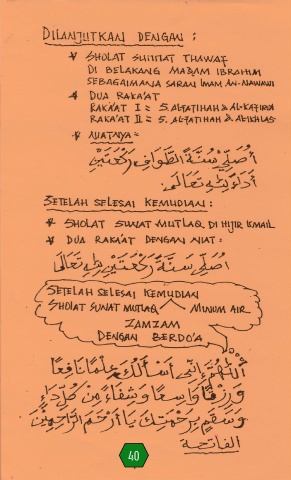 DILANJUTKAN DENGAN :
* SHOLAT SUNNAT THAWAF
DI BELAKANG MAQAM IBRAHIM
SEBAGAIMANA SARAN IMAM AN-NAWAWI
* DUA RAKA'AT
RAKA'AT I = S. ALFATIHAH & AL-KAFIRUN
RAKA'AT II = S. ALFATIHAH & ALIKHLAS
* NIATNYA =
أُصَلِّي سُنَّةَ الطَّوَافِ رَكْعَتَيْنِ
أَدَاءً لِلّٰهِ تَعَالَى
SETELAH SELESAI KEMUDIAN :
* SHOLAT SUNAT MUTLAQ DI HIJIR ISMAIL
* DUA RAKA'AT DENGAN NIAT :
أُصَلِّي سُنَّةً رَكْعَتَيْنِ لِلّٰهِ تَعَالَى
SETELAH SELESAI KEMUDIAN
SHOLAT SUNAT MUTLAQ MINUM AIR
ZAMZAM
DENGAN BERDO'A
اَللّٰهُمَّ إِنِّي أَسْأَلُكَ عِلْمًا نَافِعًا
وَرِزْقًا وَاسِعًا وَشِفَاءً مِنْ كُلِّ دَاءٍ
وَسَقَمٍ بِرَحْمَتِكَ يَا أَرْحَمَ الرَّاحِمِيْنَ
الفاتحة
40